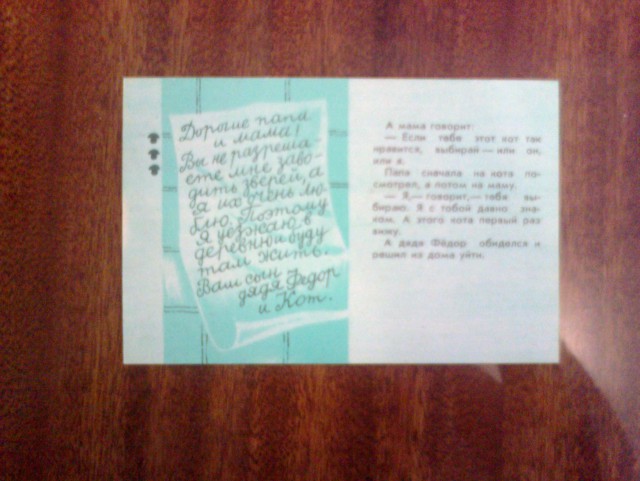 Дорогие папа
и мама!
Вы не разреша-
ете мне заво-
дить зверей, а
я их очень лю-
блю. Поэтому
я уезжаю в
деревню и буду
там жить.
Ваш сын -
дядя Федор
и Кот.
А мама говорит:
— Если тебе этот кот так
нравится, выбирай — или он,
или я.
Папа сначала на кота по-
смотрел, а потом на маму.
— Я,— говорит,— тебя вы-
бираю. Я с тобой давно зна-
ком. А этого кота первый раз
вижу.
А дядя Фёдор обиделся и
решил из дома уйти.